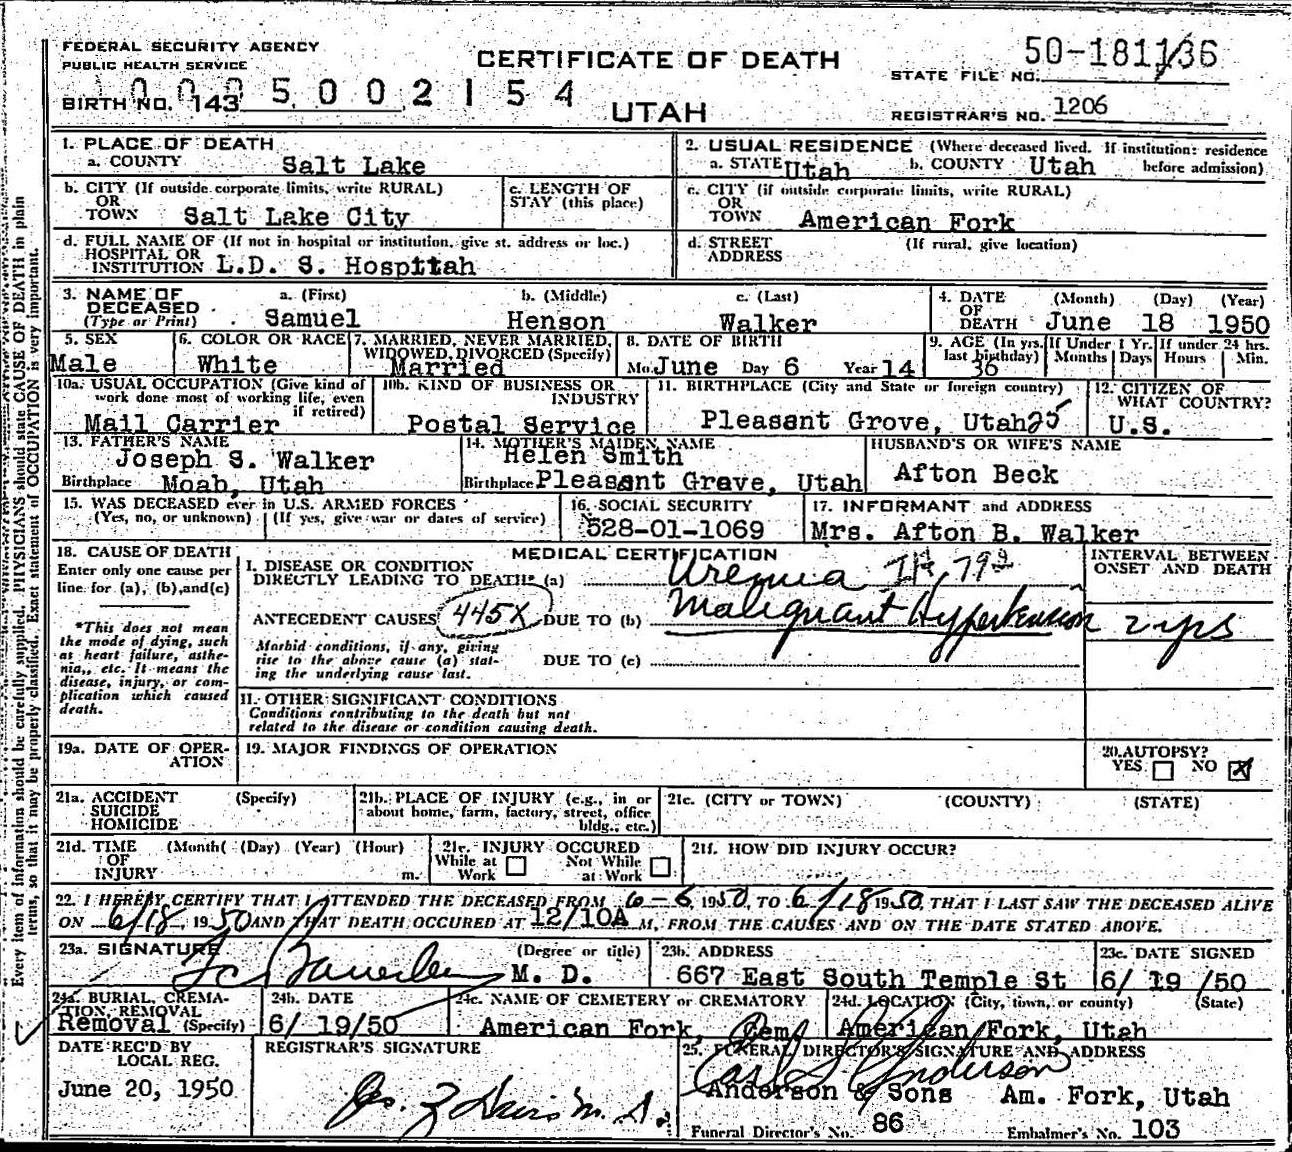 FEDERAL SECURITY AGENCY
PUBLIC HEALTH SERVICE
CERTIFICATE OF DEATH
UTAH
STATE FILE NO. 50-181 1/36
BIRTH NO. 143
0005002154
REGISTRAR'S NO. 1206
1. PLACE OF DEATH
a. COUNTY Salt Lake
2. USUAL RESIDENCE (Where deceased lived. If institution: residence before admission)
a. STATE Utah b. COUNTY Utah
b. CITY (If outside corporate limits, write RURAL)
OR
TOWN Salt Lake City
c. LENGTH OF
STAY (this place)
c. CITY (if outside corporate limits, write RURAL)
OR
TOWN American Fork
d. FULL NAME OF (If not in hospital or institution, give st. address or loc.)
HOSPITAL OR
INSTITUTION L.D. S. Hospttah
d. STREET
ADDRESS
(If rural, give location)
3. NAME OF
DECEASED
(Type or Print)
a. (First) b. (Middle) c. (Last)
Samuel Henson Walker
4. DATE
OF
DEATH
(Month) (Day) (Year)
June 18 1950
5. SEX
Male
6. COLOR OR RACE
White
7. MARRIED, NEVER MARRIED,
WIDOWED, DIVORCED (Specify)
Married
8. DATE OF BIRTH
Mo. June Day 6 Year 14
9. AGE (In yrs. last birthday)
36
If Under 1 Yr.
Months Days
If under 24 hrs.
Hours Min.
10a. USUAL OCCUPATION (Give kind of
work done most of working life, even
if retired)
Mail Carrier
10b. KIND OF BUSINESS OR
INDUSTRY
Postal Service
11. BIRTHPLACE (City and State or foreign country)
Pleasant Grove, Utah 25
12. CITIZEN OF
WHAT COUNTRY?
U.S.
13. FATHER'S NAME
Joseph S. Walker
Birthplace Moab, Utah
14. MOTHER'S MAIDEN NAME
Helen Smith
Birthplace Pleasant Grave, Utah
HUSBAND'S OR WIFE'S NAME
Afton Beck
15. WAS DECEASED ever in U.S. ARMED FORCES
(Yes, no, or unknown) (If yes, give war or dates of service)
16. SOCIAL SECURITY
528-01-1069
17. INFORMANT and ADDRESS
Mrs. Afton B. Walker
18. CAUSE OF DEATH
Enter only one cause per
line for (a), (b), and (c)
*This does not mean
the mode of dying, such
as heart failure, asthe-
nia, etc. It means the
disease, injury, or com-
plication which caused
death.
MEDICAL CERTIFICATION
INTERVAL BETWEEN
ONSET AND DEATH
I. DISEASE OR CONDITION
DIRECTLY LEADING TO DEATH* (a) Uremia
ANTECEDENT CAUSES 445X DUE TO (b) Malignant Hypertension 2 yrs
Morbid conditions, if any, giving
rise to the above cause (a) stat-
ing the underlying cause last.
DUE TO (c)
II. OTHER SIGNIFICANT CONDITIONS
Conditions contributing to the death but not
related to the disease or condition causing death.
19a. DATE OF OPER-
ATION
19. MAJOR FINDINGS OF OPERATION
20. AUTOPSY?
YES NO X
21a. ACCIDENT
SUICIDE
HOMICIDE
(Specify)
21b. PLACE OF INJURY (e.g., in or
about home, farm, factory, street, office
bldg., etc.)
21c. (CITY or TOWN) (COUNTY) (STATE)
21d. TIME
OF
INJURY
(Month( (Day) (Year) (Hour)
m.
21e. INJURY OCCURED
While at
Work
Not While
at Work
21f. HOW DID INJURY OCCUR?
22. I HEREBY CERTIFY THAT I ATTENDED THE DECEASED FROM 6-6, 1950, TO 6/18 1950, THAT I LAST SAW THE DECEASED ALIVE
ON 6/18, 1950 AND THAT DEATH OCCURED AT 12/10A M, FROM THE CAUSES AND ON THE DATE STATED ABOVE.
23a. SIGNATURE
(Degree or title)
M. D.
23b. ADDRESS
667 East South Temple St
23c. DATE SIGNED
6/ 19 /50
24a. BURIAL, CREMA-
TION, REMOVAL
Removal (Specify)
24b. DATE
6/ 19/50
24c. NAME OF CEMETERY or CREMATORY
American Fork, Cem.
24d. LOCATION (City, town, or county) (State)
American Fork, Utah
DATE REC'D BY
LOCAL REG.
June 20, 1950
REGISTRAR'S SIGNATURE
25. FUNERAL DIRECTOR'S SIGNATURE AND ADDRESS
Anderson & Sons Am. Fork, Utah
Funeral Director's No. 86 Embalmer's No. 103
Every item of information should be carefully supplied. PHYSICIANS should state CAUSE OF DEATH in plain
terms, so that it may be properly classified. Exact statement of OCCUPATION is very important.